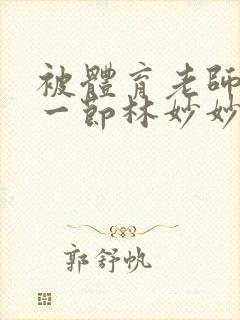 被體育老師
一節林妙妙
郭舒帆